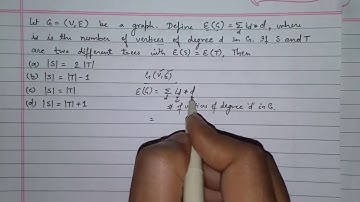 Let G = (V, E) be a graph. Define ξ(G) = Σ_d i_d * d, where
i_d is the number of vertices of degree d in G. If S and T
are two different trees with ξ(S) = ξ(T), Then
(a) |S| = 2|T|
(b) |S| = |T| - 1
(c) |S| = |T|
(d) |S| = |T| + 1
G(V, E)
ξ(G) = Σ_d i_d * d
# of vertices of degree 'd' in G.
=